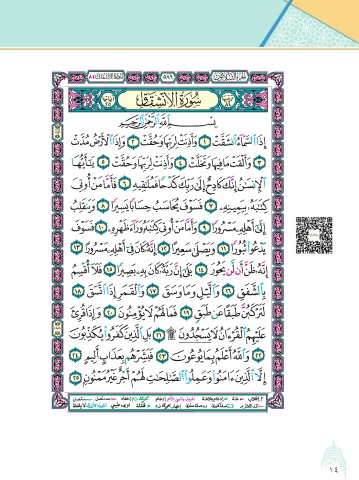 ٥٨٩
سُورَةُ الِانشِقَاقِ
بِسْمِ اللَّهِ الرَّحْمَٰنِ الرَّحِيمِ
إِذَا السَّمَاءُ انشَقَّتْ ١ وَأَذِنَتْ لِرَبِّهَا وَحُقَّتْ ٢ وَإِذَا الْأَرْضُ مُدَّتْ
٣ وَأَلْقَتْ مَا فِيهَا وَتَخَلَّتْ ٤ وَأَذِنَتْ لِرَبِّهَا وَحُقَّتْ ٥ يَٰأَيُّهَا
الْإِنسَٰنُ إِنَّكَ كَادِحٌ إِلَىٰ رَبِّكَ كَدْحًا فَمُلَٰقِيهِ ٦ فَأَمَّا مَنْ أُوتِيَ
كِتَٰبَهُ بِيَمِينِهِ ٧ فَسَوْفَ يُحَاسَبُ حِسَابًا يَسِيرًا ٨ وَيَنقَلِبُ
إِلَىٰ أَهْلِهِ مَسْرُورًا ٩ وَأَمَّا مَنْ أُوتِيَ كِتَٰبَهُ وَرَاءَ ظَهْرِهِ ١٠ فَسَوْفَ
يَدْعُوا ثُبُورًا ١١ وَيَصْلَىٰ سَعِيرًا ١٢ إِنَّهُ كَانَ فِي أَهْلِهِ مَسْرُورًا ١٣
إِنَّهُ ظَنَّ أَن لَّن يَحُورَ ١٤ بَلَىٰ إِنَّ رَبَّهُ كَانَ بِهِ بَصِيرًا ١٥ فَلَا أُقْسِمُ
بِالشَّفَقِ ١٦ وَالَّيْلِ وَمَا وَسَقَ ١٧ وَالْقَمَرِ إِذَا اتَّسَقَ ١٨
لَتَرْكَبُنَّ طَبَقًا عَن طَبَقٍ ١٩ فَمَا لَهُمْ لَا يُؤْمِنُونَ ٢٠ وَإِذَا قُرِئَ
عَلَيْهِمُ الْقُرْءَانُ لَا يَسْجُدُونَ ۩ ٢١ بَلِ الَّذِينَ كَفَرُوا يُكَذِّبُونَ
٢٢ وَاللَّهُ أَعْلَمُ بِمَا يُوعُونَ ٢٣ فَبَشِّرْهُم بِعَذَابٍ أَلِيمٍ ٢٤
إِلَّا الَّذِينَ ءَامَنُوا وَعَمِلُوا الصَّٰلِحَٰتِ لَهُمْ أَجْرٌ غَيْرُ مَمْنُونٍ ٢٥
١٤